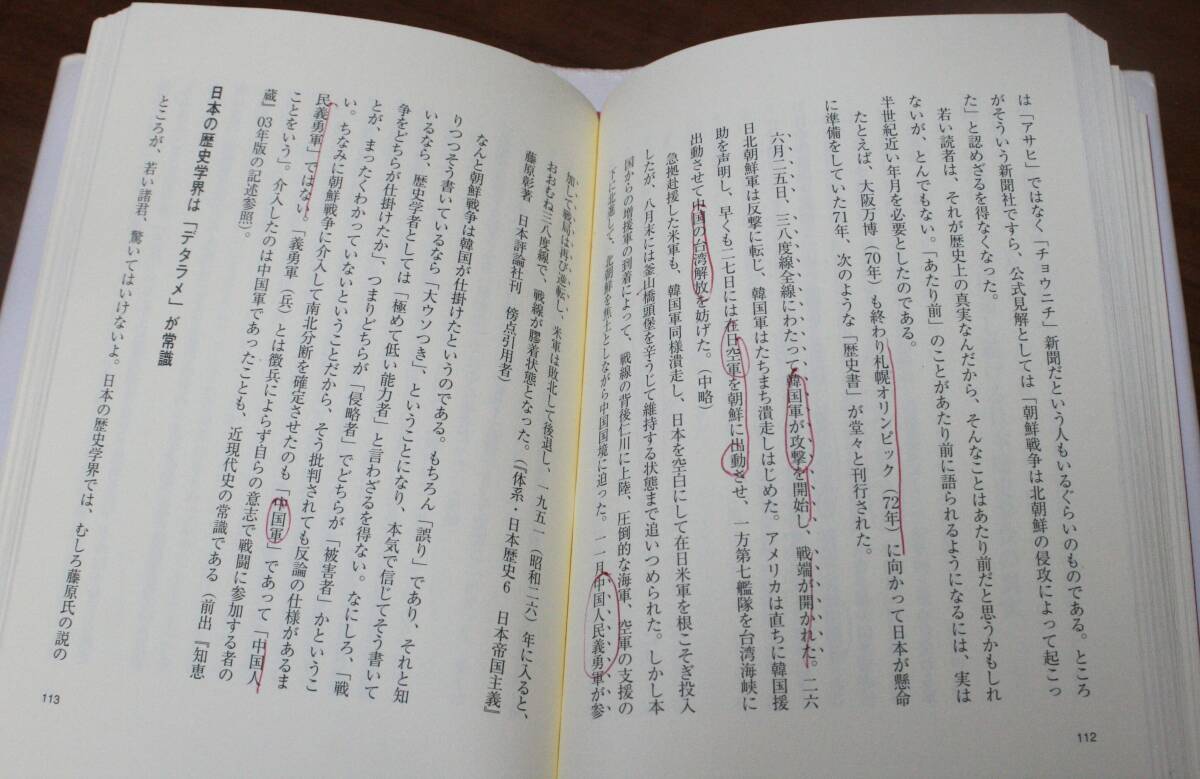 は「アサヒ」ではなく「チョウニチ」新聞だという人もいるぐらいのものである。ところ
がそういう新聞社ですら、公式見解としては「朝鮮戦争は北朝鮮の侵攻によって起こっ
た」と認めざるを得なくなった。
若い読者は、それが歴史上の真実なんだから、そんなことはあたり前だと思うかもしれ
ないが、とんでもない。「あたり前」のことがあたり前に語られるようになるには、実は
半世紀近い年月を必要としたのである。
たとえば、大阪万博（70年）も終わり札幌オリンピック（72年）に向かって日本が懸命
に準備をしていた71年、次のような「歴史書」が堂々と刊行された。
六月二五日、三八度線全線にわたって韓国軍が攻撃を開始し、戦端が開かれた。二六
日北朝鮮軍は反撃に転じ、韓国軍はたちまち潰走しはじめた。アメリカは直ちに韓国援
助を声明し、早くも二七日には在日空軍を朝鮮に出動させ、一方第七艦隊を台湾海峡に
出動させて中国の台湾解放を妨げた。（中略）
急拠赴援した米軍も、韓国軍同様潰走し、日本を空白にして在日米軍を根こそぎ投入
したが、八月末には釜山橋頭堡を辛うじて維持する状態まで追いつめられた。しかし本
国からの増援軍の到着によって、戦線の背後仁川に上陸、圧倒的な海軍、空軍の支援の
下に北進して、北朝鮮を焦土としながら中国国境に迫った。一一月中国人民義勇軍が参
加して戦局は再び逆転し、米軍は敗北して後退し、一九五一（昭和二六）年に入ると、
おおむね三八度線で、戦線が膠着状態となった。（『体系・日本歴史6　日本帝国主義』
藤原彰著　日本評論社刊　傍点引用者）
なんと朝鮮戦争は韓国が仕掛けたというのである。もちろん「誤り」であり、それと知
りつつそう書いているなら「大ウソつき」、ということになり、本気で信じてそう書いて
いるなら、歴史学者としては「極めて低い能力者」と言わざるを得ない。なにしろ、「戦
争をどちらが仕掛けたか」、つまりどちらが「侵略者」でどちらが「被害者」かというこ
とが、まったくわかっていないということだから、そう批判されても反論の仕様があるま
い。ちなみに朝鮮戦争に介入して南北分断を確定させたのも「中国軍」であって「中国人
民義勇軍」ではない（「義勇軍（兵）とは徴兵によらず自らの意志で戦闘に参加する者の
ことをいう」。介入したのは中国軍であったことも、近現代史の常識である（前出『知恵
蔵』03年版の記述参照）。
日本の歴史学界は「デタラメ」が常識
ところが、若い諸君、驚いてはいけないよ。日本の歴史学界では、むしろ藤原氏の説の
112
113